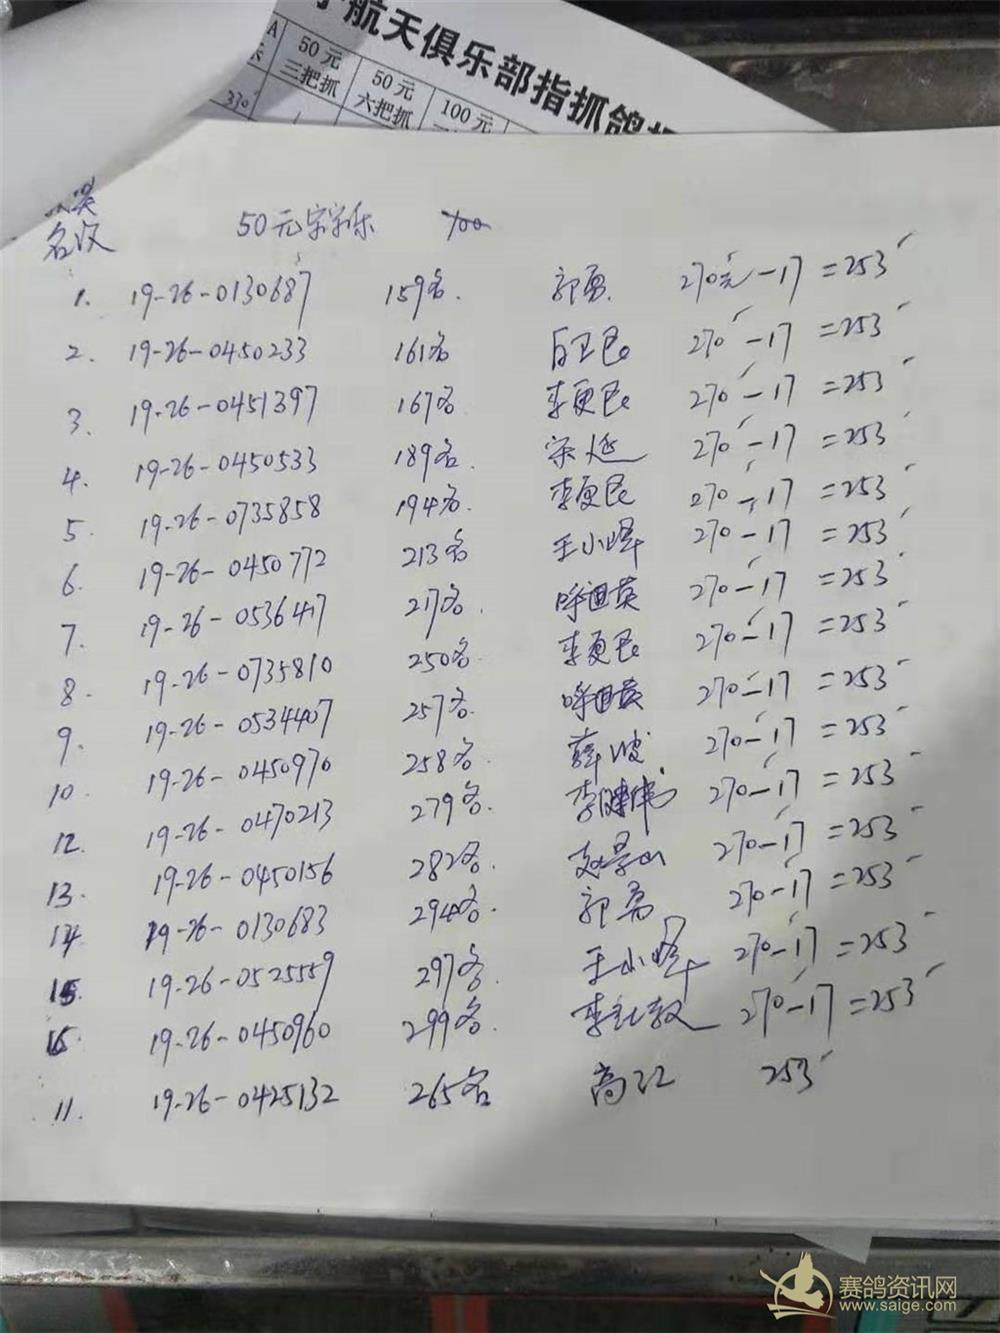 航天俱乐部指抓鸽
50元 50元 100元
三把抓 六把抓
370
名次 50元
1. 19-26-0130687 159名. 郭勇 270元-17=253
2. 19-26-0450233 161名 白卫民 270-17=253
3. 19-26-0451397 167名 李更民 270-17=253
4. 19-26-0450533 189名. 宋延 270-17=253
5. 19-26-0735858 194名. 李更民 270-17=253
6. 19-26-0450772 213名 王小峰 270-17=253
7. 19-26-0536417 217名. 270-17=253
8. 19-26-0735810 250名. 李更民 270-17=253
9. 19-26-0534407 257名. 270-17=253
10 19-26-0450970 258名. 薛波 270-17=253
12. 19-26-0470213 279名. 李建伟 270-17=253
13. 19-26-0450156 282名. 赵景山 270-17=253
14 19-26-0130683 294名. 郭勇 270-17=253
15. 19-26-0525559 297名. 王小峰 270-17=253
16. 19-26-0450960 299名. 270-17=253
11. 19-26-0425132 265名 高江 253
赛鸽资讯网
www.saige.com